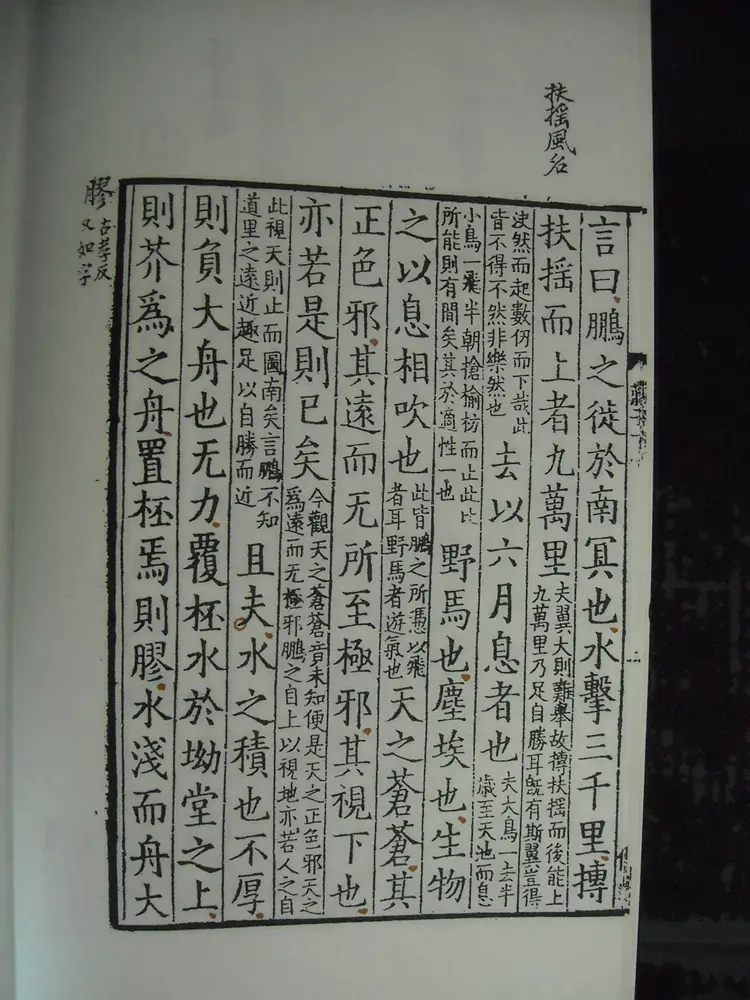 扶揺風名
言曰鵬之徙於南冥也水擊三千里摶
扶揺而上者九萬里
夫翼大則難舉故摶扶揺而後能上
九萬里乃足自勝耳旣有斯翼豈得
决然而起數仞而下哉此
皆不得不然非樂然也
去以六月息者也
夫大鳥一去半
歳至天池而息
小鳥一飛半朝搶榆枋而止此比
所能則有間矣其於適性一也
野馬也塵埃也生物
之以息相吹也
此皆鵬之所馮以飛
者耳野馬者遊氣也
天之蒼蒼其
正色邪其遠而无所至極邪其視下也
亦若是則已矣
今觀天之蒼蒼音未知便是天之正色邪天之
爲遠而无極邪鵬之自上以視地亦若人之自
此視天則止而圖南矣言鵬不知
道里之遠近趣足以自勝而近
且夫水之積也不厚
則負大舟也无力覆杯水於坳堂之上
則芥爲之舟置杯焉則膠水淺而舟大
膠
古孝反
又如字